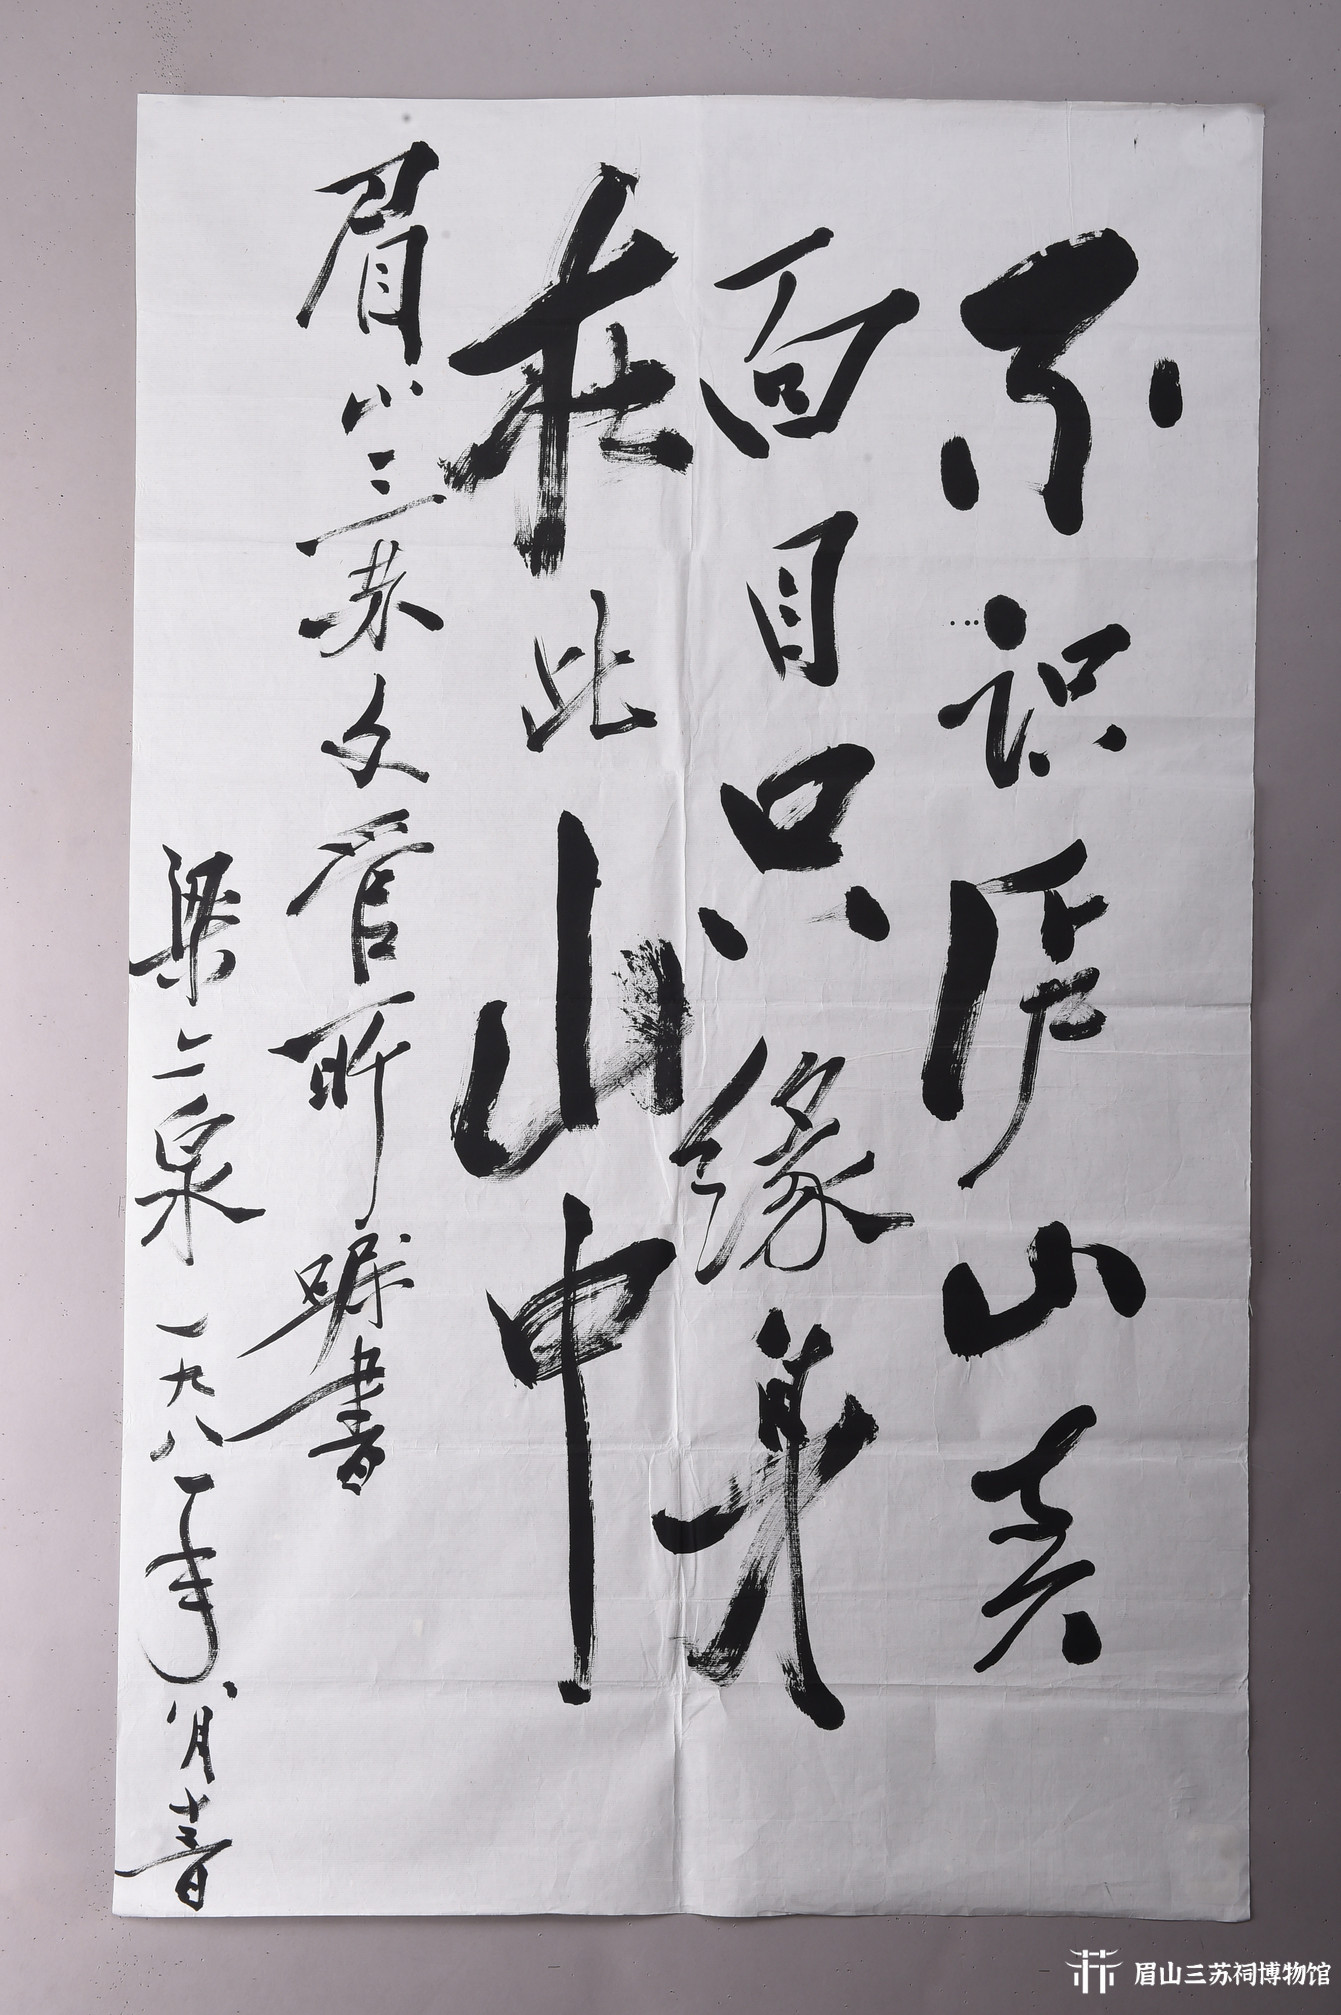 不识庐山真
面目只缘身
在此山中
眉山三苏文管所嘱书
梁上泉 一九八一年八月十三日
眉山三苏祠博物馆